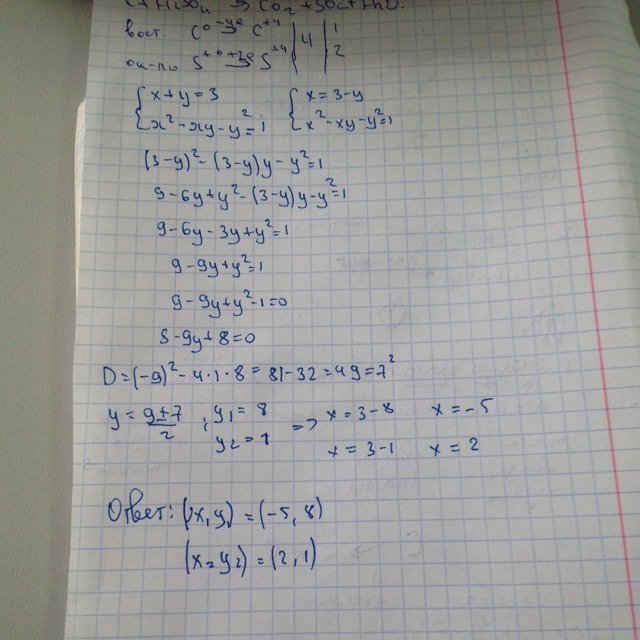 C+H2SO4 → CO2+SO2+H2O.
вост. C⁰ -4e→ C⁺⁴ | 4 | 1
ок-ль S⁺⁶ +2e→ S⁺⁴ | | 2
{x+y=3 {x=3-y
{x²-xy-y²=1 {x²-xy-y²=1
(3-y)²-(3-y)y-y²=1
9-6y+y²-(3-y)y-y²=1
9-6y-3y+y²=1
9-9y+y²=1
9-9y+y²-1=0
8-9y+8=0
D=(-9)²-4·1·8=81-32=49=7²
y=(9±7)/2, y1=8 => x=3-8 x=-5
y2=1 x=3-1 x=2
Ответ: (x1y) =(-5,8)
(x2y2)=(2,1)